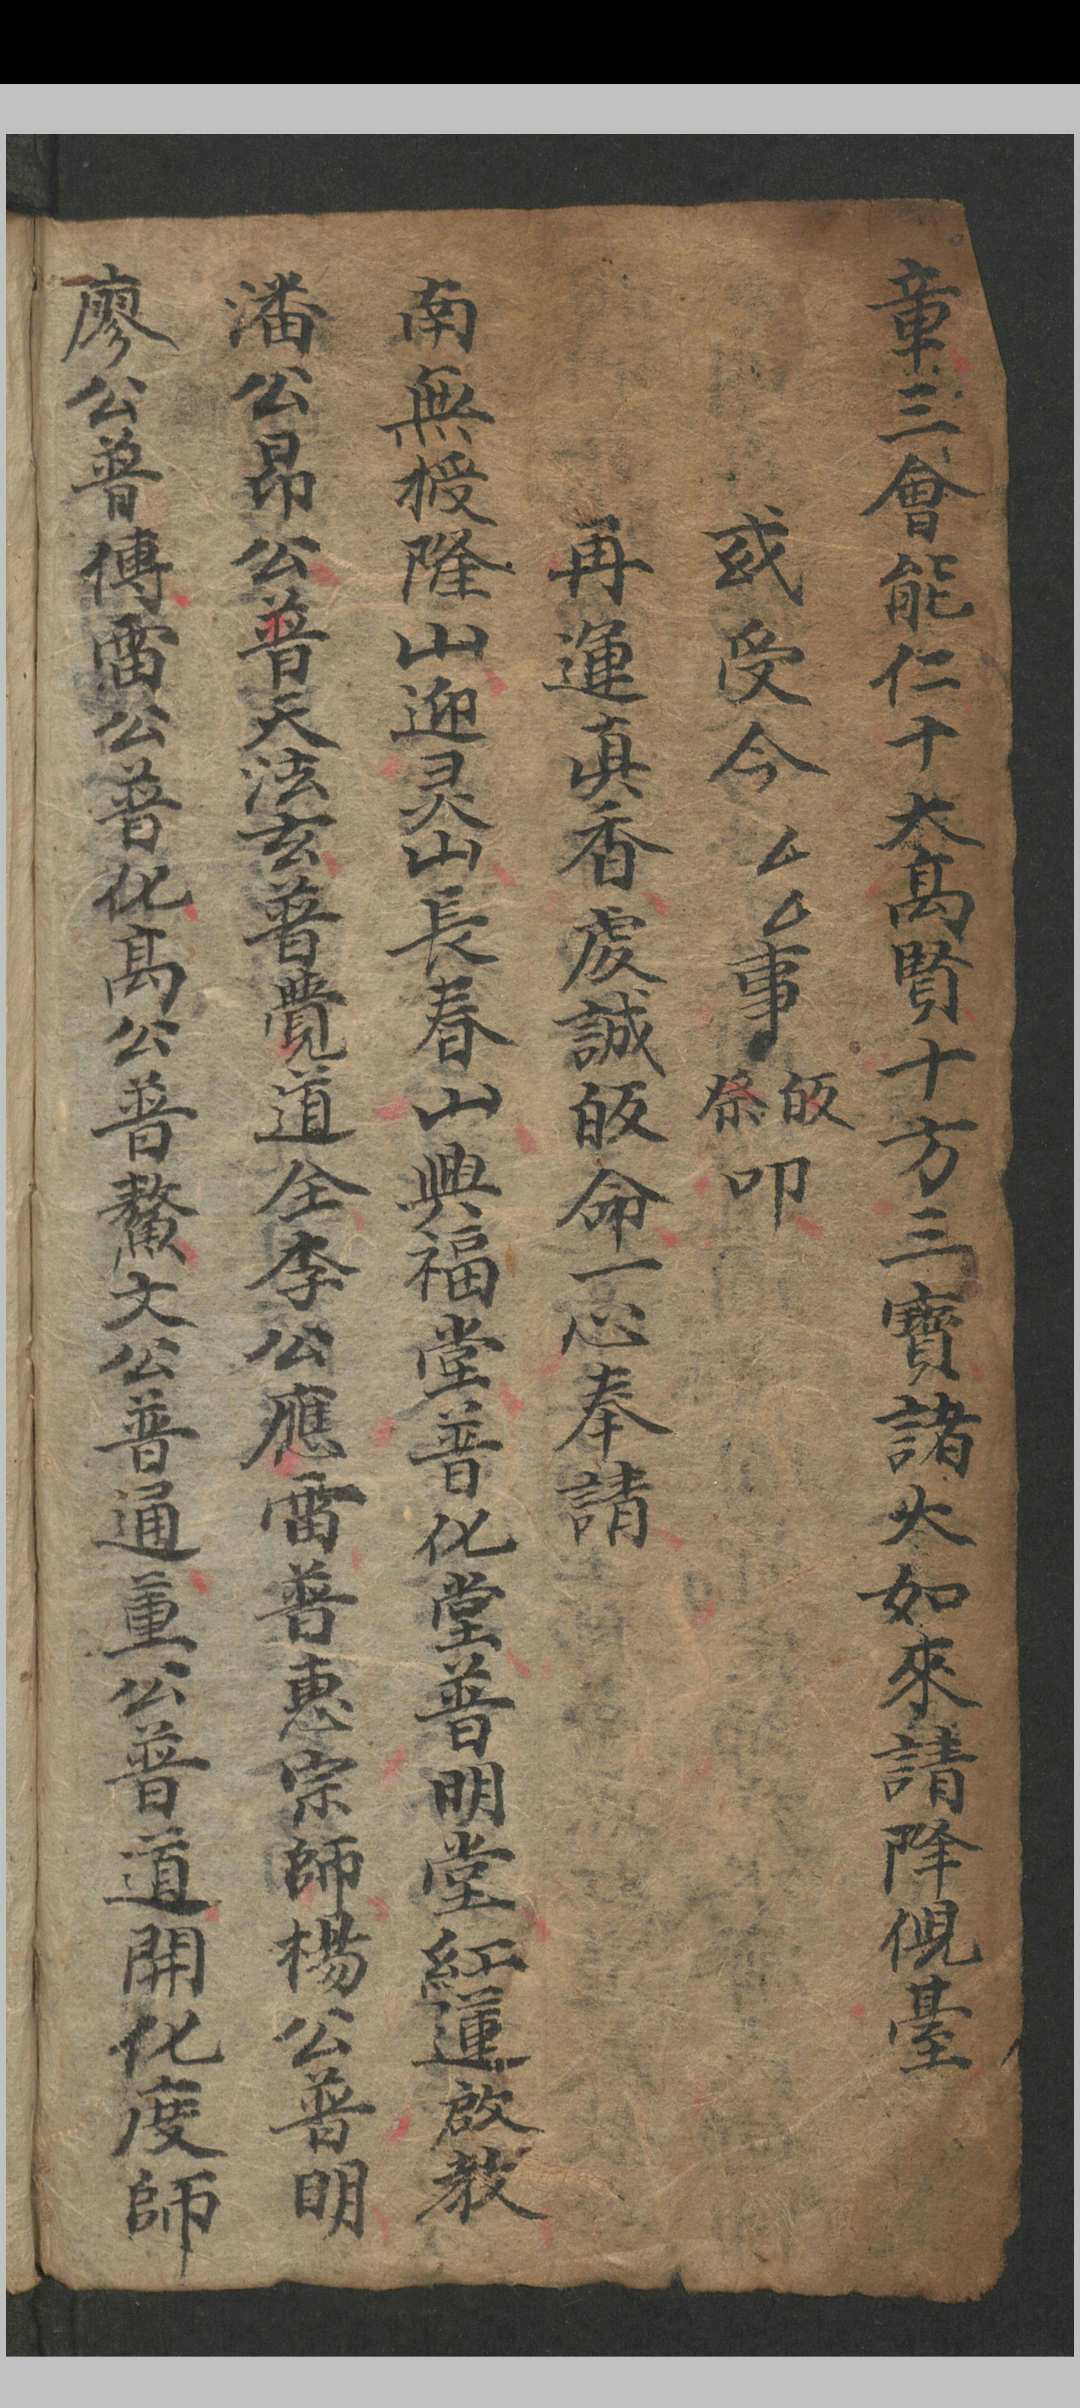 章三會能仁十大高賢十方三寶諸大如來請降俔臺
或受今厶厶事皈祭叩
再運真香虔誠皈命一心奉請
南無授隆山迎灵山長春山興福堂普化堂普明堂紅蓮啟教
潘公昂公普天法玄普覺道全李公應雷普惠宗師楊公普明
廖公普傳雷公普化高公普鰲文公普通董公普道開化度師